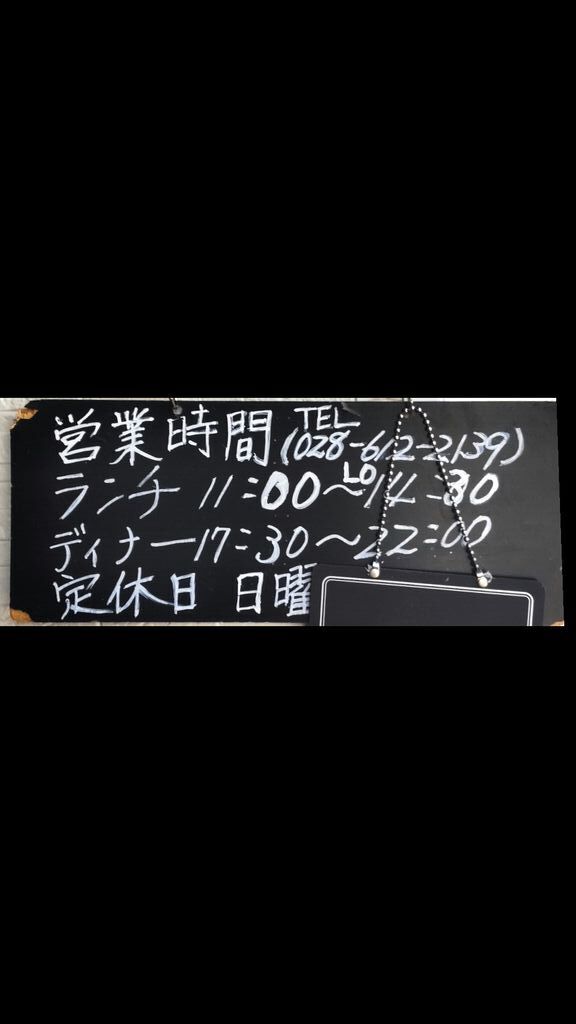 営業時間 TEL (028-612-2139)
ランチ 11:00～LO14:30
ディナー17:30～22:00
定休日 日曜